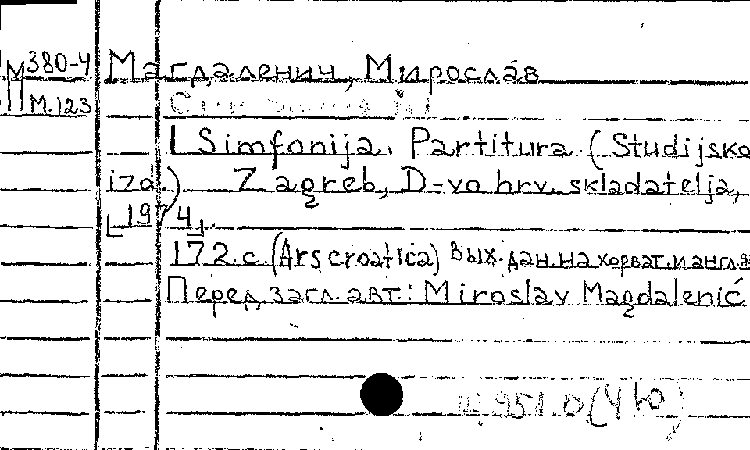 М 380-4 Магдаленич, Мирослав
М.123
1 Simfonija. Partitura (Studijsko
izd.) Zagreb, D-vo hrv. skladatelja,
[1974].
172 с. (Ars croatica) Вых. дан. на хорват. и англ. яз
Перед загл. авт.: Miroslav Magdalenić
951.0 (4Ю)